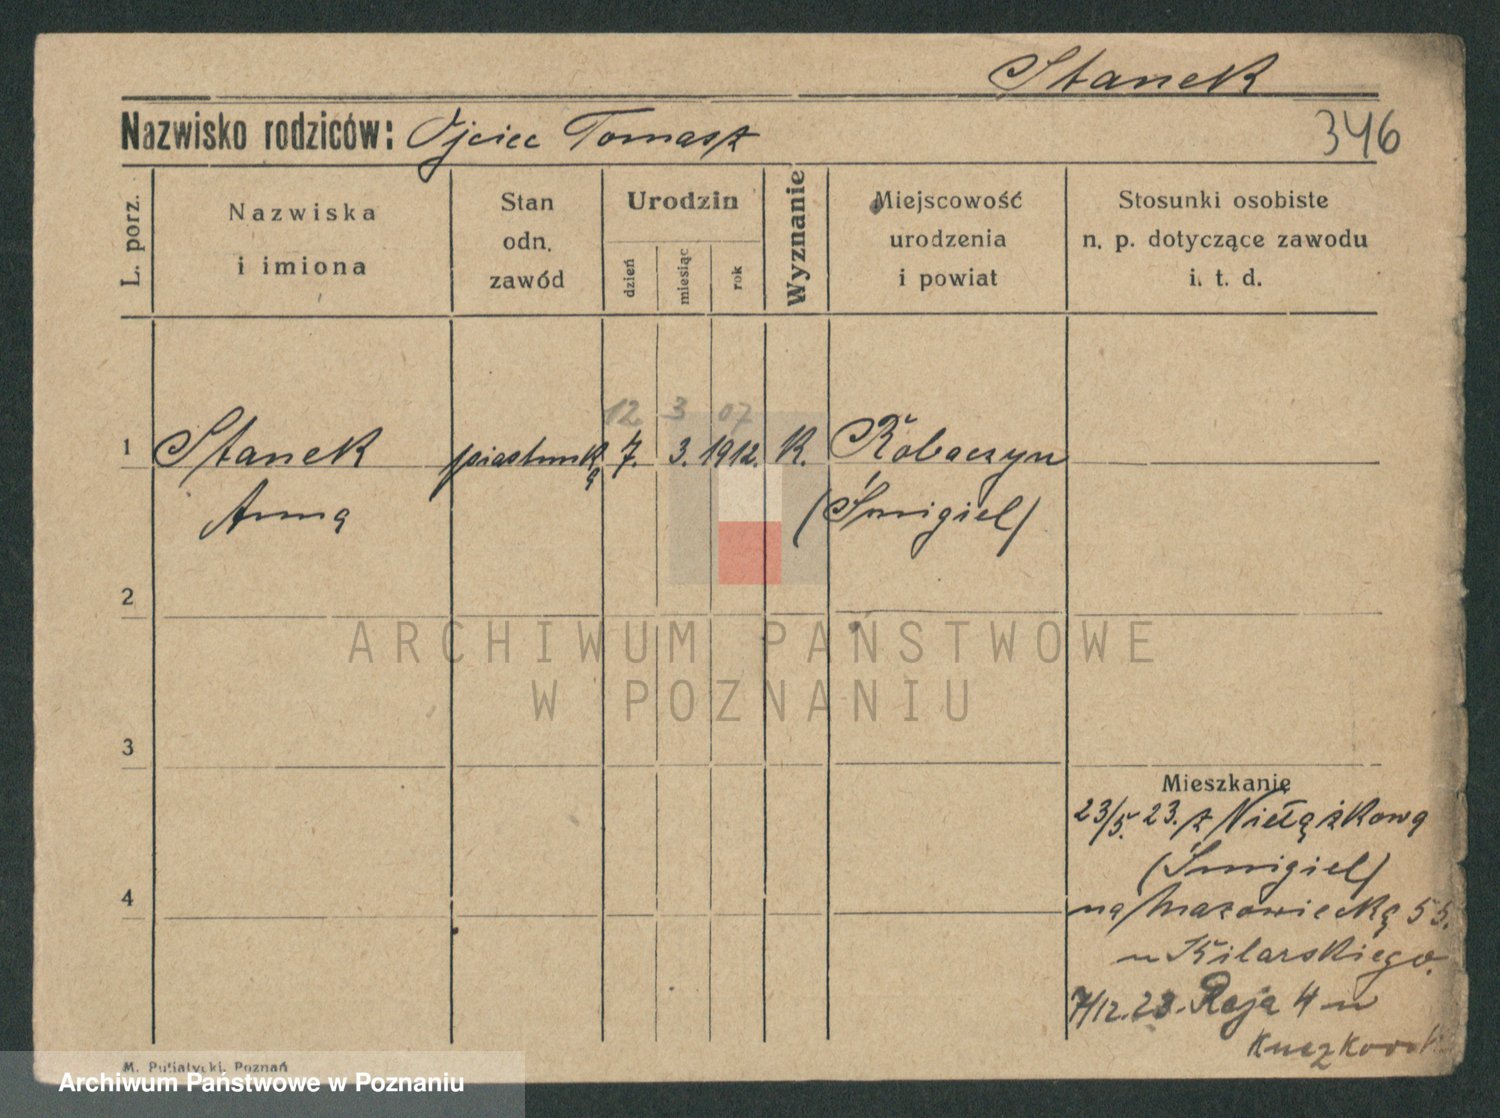 Stanek
Nazwisko rodziców: Ojciec Tomasz
346
L. porz.
Nazwiska
i imiona
Stan
odn.
zawód
Urodzin
dzień
miesiąc
rok
Wyznanie
Miejscowość
urodzenia
i powiat
Stosunki osobiste
n. p. dotyczące zawodu
i. t. d.
12 3 07
1 Stanek piastunka 7. 3. 1912. K. Robaczyn
Anna (Śmigiel)
2
ARCHIWUM PAŃSTWOWE
W POZNANIU
3
Mieszkanie
23/5. 23. z Nietążkowa
(Śmigiel)
4
na Mazowiecką 55.
u Kilarskiego.
7/12. 23. Reja 4 u
M. Putiatycki, Poznań
Archiwum Państwowe w Poznaniu